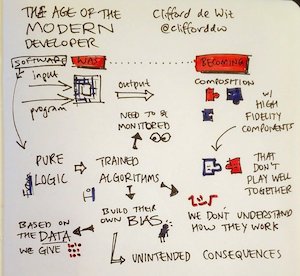 THE AGE OF THE
MODERN
DEVELOPER
Clifford de Wit
@clifforddw
SOFTWARE WAS BECOMING
input
output
program
COMPOSITION
W/
HIGH
FIDELITY
COMPONENTS
NEED TO
BE
MONITORED
PURE
LOGIC
TRAINED
ALGORITHMS
THAT
DON'T
PLAY WELL
TOGETHER
BUILD THEIR
OWN BIAS
BASED ON
THE DATA
WE GIVE
WE DON'T UNDERSTAND
HOW THEY WORK
UNINTENDED CONSEQUENCES